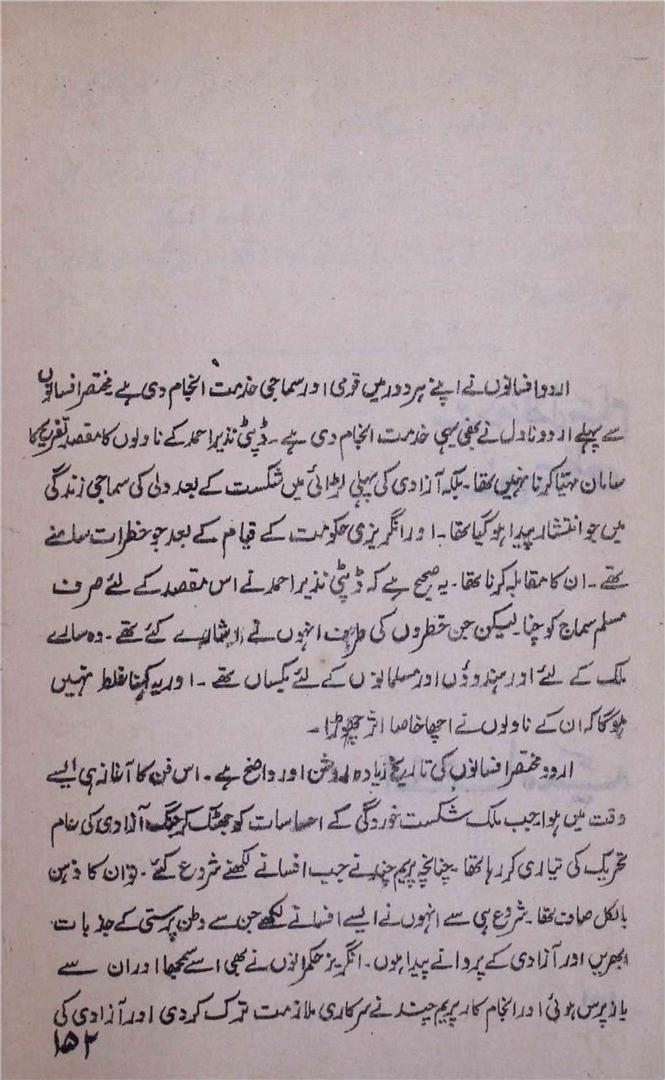 اردو افسانوں نے اپنے ہر دور میں قومی اور سماجی خدمت انجام دی ہے مختصر افسانوں
سے پہلے اردو ناول نے بھی یہی خدمت انجام دی ہے۔ ڈپٹی نذیر احمد کے ناولوں کا مقصد تفریح کا
سامان مہیّا کرنا نہیں تھا۔ بلکہ آزادی کی پہلی لڑائی میں شکست کے بعد دلی کی سماجی زندگی
میں جو انتشار پیدا ہو گیا تھا۔ اور انگریزی حکومت کے قیام کے بعد جو خطرات سامنے
تھے۔ ان کا مقابلہ کرنا تھا۔ یہ صحیح ہے کہ ڈپٹی نذیر احمد نے اس مقصد کے لئے صرف
مسلم سماج کو چنا۔ لیکن جن خطروں کی طرف انہوں نے اشارے کئے تھے۔ وہ سارے
ملک کے لئے اور ہندوؤں اور مسلمانوں کے لئے یکساں تھے۔ اور یہ کہنا غلط نہیں
ہو گا کہ ان کے ناولوں نے اچھا خاصا اثر چھوڑا۔
اردو مختصر افسانوں کی تاریخ زیادہ روشن اور واضح ہے۔ اس فن کا آغاز ہی ایسے
وقت میں ہوا۔ جب ملک شکست خوردگی کے احساسات کو جھٹک کر جنگ آزادی کی عام
تحریک کی تیاری کر رہا تھا۔ چنانچہ پریم چند نے جب افسانے لکھنے شروع کئے۔ تو ان کا ذہن
بالکل صاف تھا۔ شروع ہی سے انہوں نے ایسے افسانے لکھے جن سے وطن پرستی کے جذبات
ابھریں اور آزادی کے پروانے پیدا ہوں۔ انگریز حکمرانوں نے بھی اسے سمجھا اور ان سے
باز پرس ہوئی اور انجام کار پریم چند نے سرکاری ملازمت ترک کر دی اور آزادی کی
۱۵۲